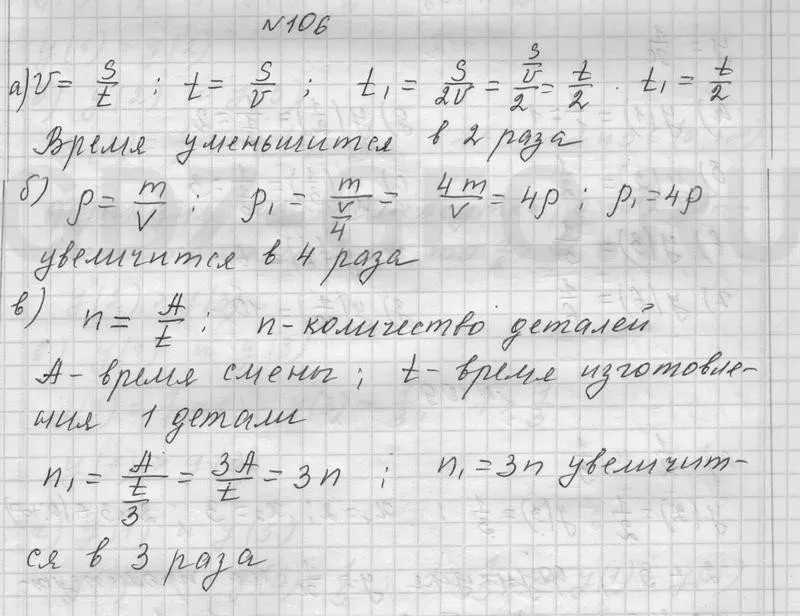 №106
а) v = s/t ; t = s/v ; t₁ = s/2v = (s/v)/2 = t/2 . t₁ = t/2
Время уменьшится в 2 раза
б) ρ = m/V ; ρ₁ = m/(V/4) = 4m/V = 4ρ ; ρ₁ = 4ρ
увеличится в 4 раза
в) n = A/t ; n - количество деталей
A - время смены ; t - время изготовле-
ния 1 детали
n₁ = A/(t/3) = 3A/t = 3n ; n₁ = 3n увеличит-
ся в 3 раза